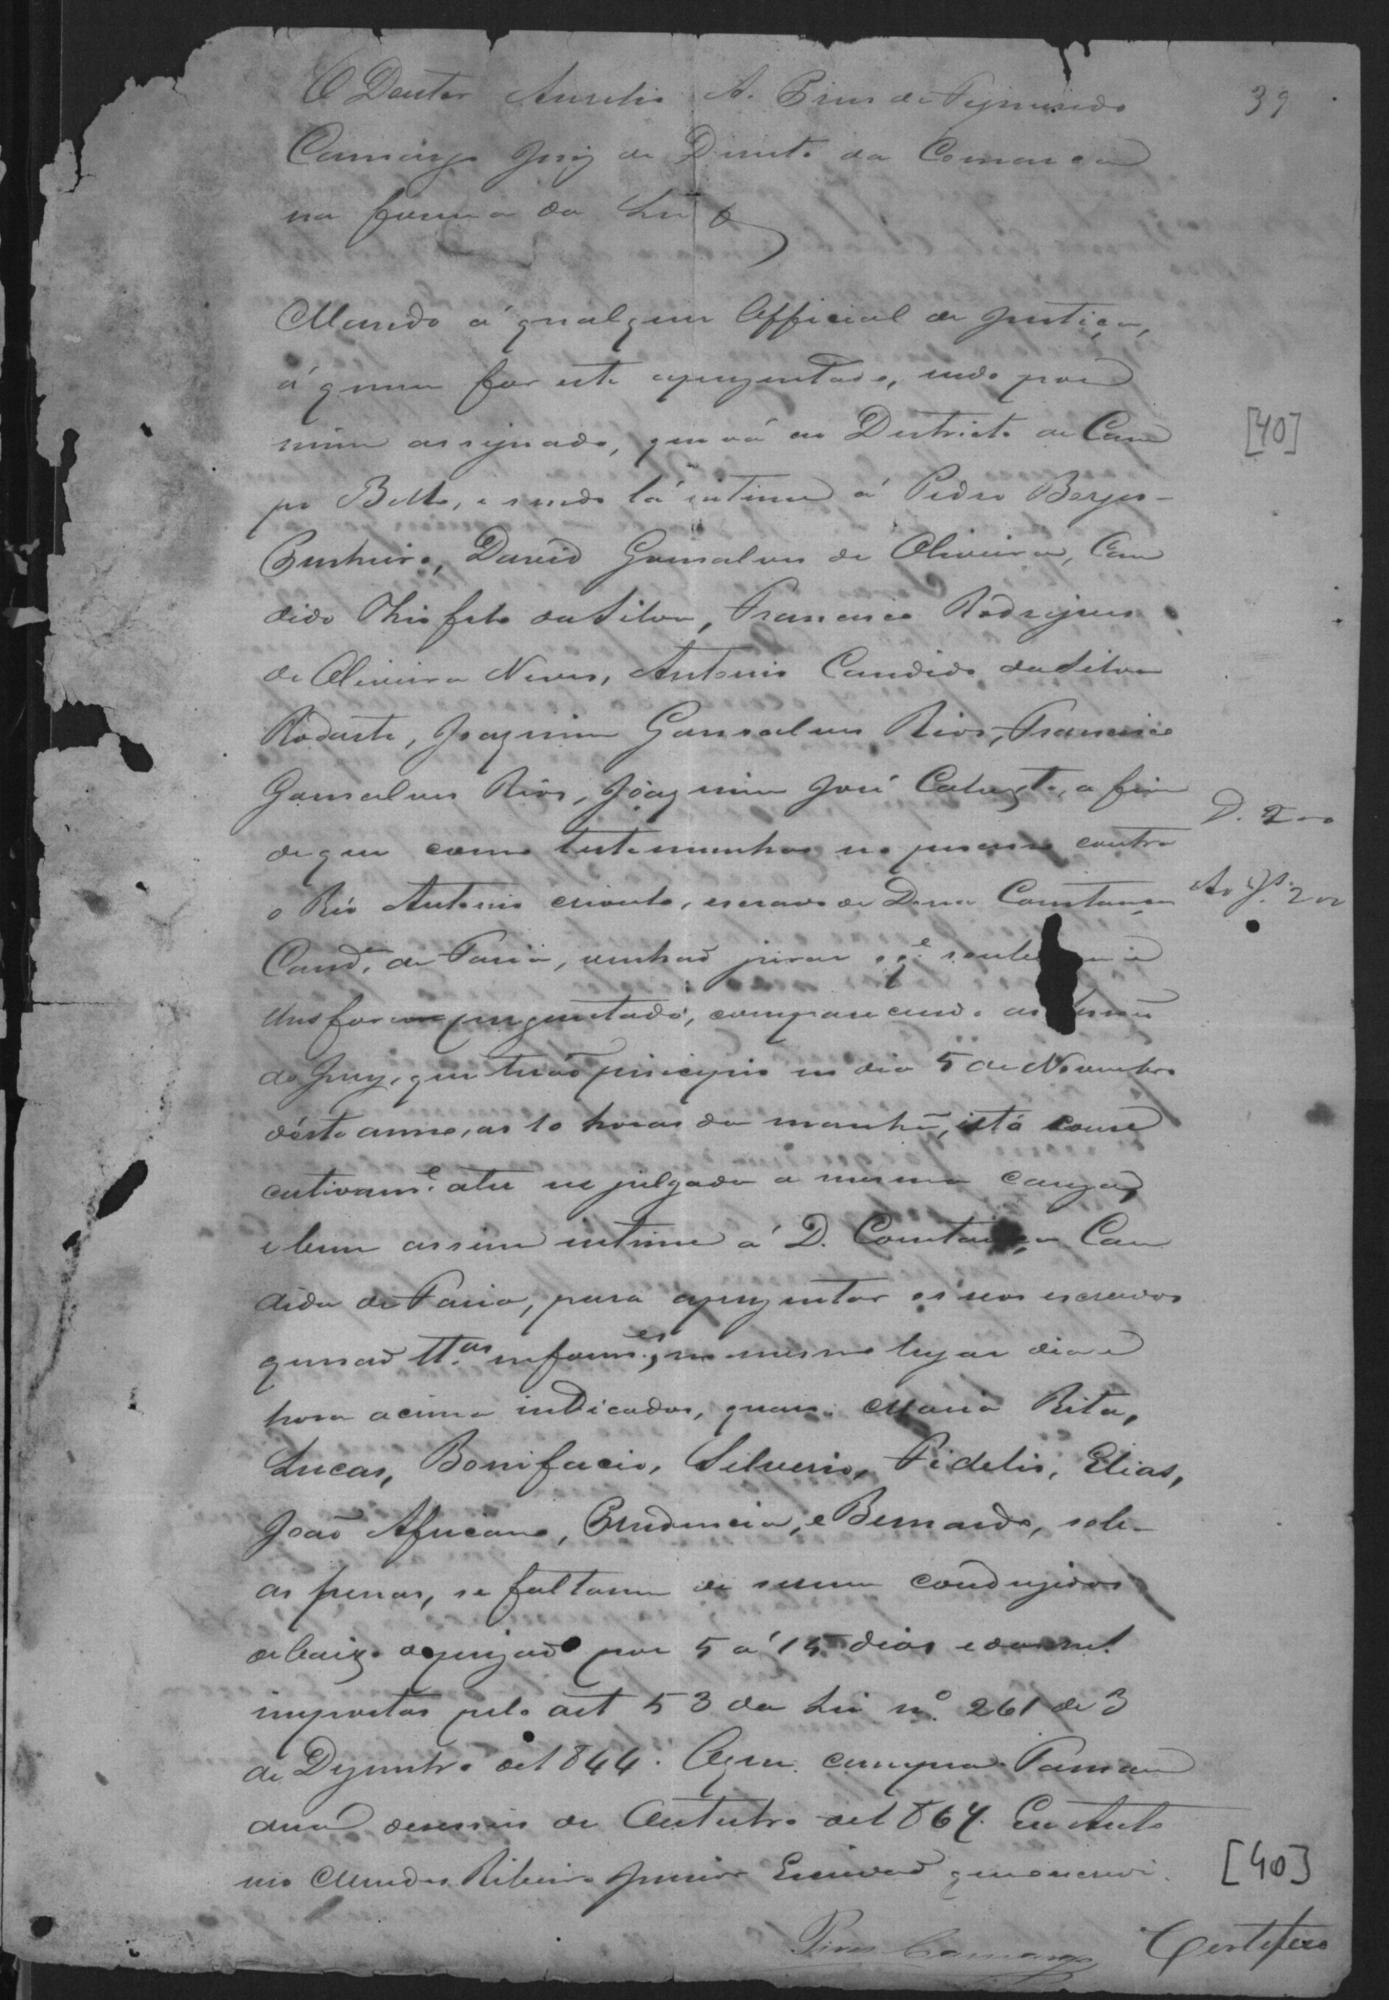 O Doutor Aurelio A. Pires de Figueiredo
39
Camargo Juiz de Direito da Comarca
na forma da Lei &
Mando á qualquer Official de Justiça,
á quem for este aprezentado, indo por
mim assignado, que vá ao Districto de Cam
[40]
po Bello, e sendo lá intime á Pedro Borges
David Gonsalves de Oliveira, Can
dido Theofilo da Silva, Francisco Rodrigues
de Oliveira Neves, Antonio Candido da Silva
Rodarte, Joaquim Gonsalves Rios, Francisco
Gonsalves Rios, Joaquim José a fim
D. 200
de que como testemunhas no processo contra
o Réo Antonio crioulo, escravo de Dona Constança
Cand.ª de Faria, venhaõ jurar o q.e
lhes for comparecendo
do Jury, que terá principio no dia 5 de Novembro
déste anno, as 10 horas da manhã, e
cutivam.e ate ser julgada a mesma cauza,
e bem assim intime á D. Constança Can
dida de Faria, para aprezentar os seos escravos
que saõ tt.as inform.es, no mesmo lugar dia e
hora acima indicados, quaes: Maria Rita,
Lucas, Bonifacio, Silverio, Fidelis, Elias,
Joaõ Africano, Prudencia, e Bernardo, sob
as penas, se faltarem de serem condusidos
debaixo de prizaõ por 5 á 15 dias e
impostas pelo art 53 da Lei nº. 261 de 3
de Dezembro de 1844. O que cumpra. Taman
duá deseseis de Outubro de 1867. Eu Anto
nio Mendes Ribeiro Junior Escrivaõ que o escrevi.
[40]
Pires Camargo
Certifico